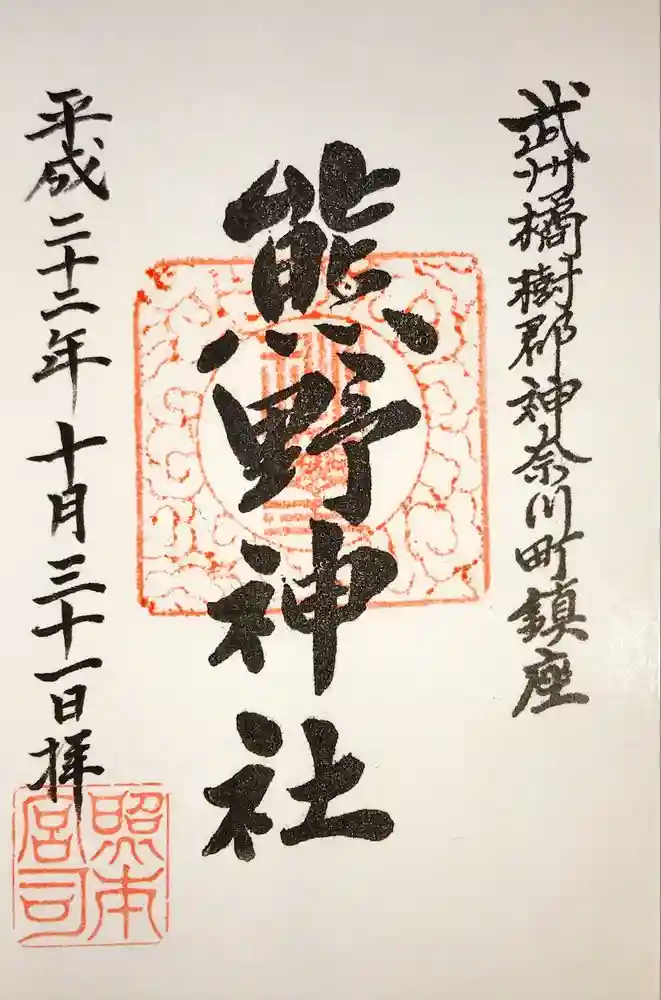 武州橘樹郡神奈川町鎮座
熊野神社
平成二十二年十月三十一日拝
照本
宮司